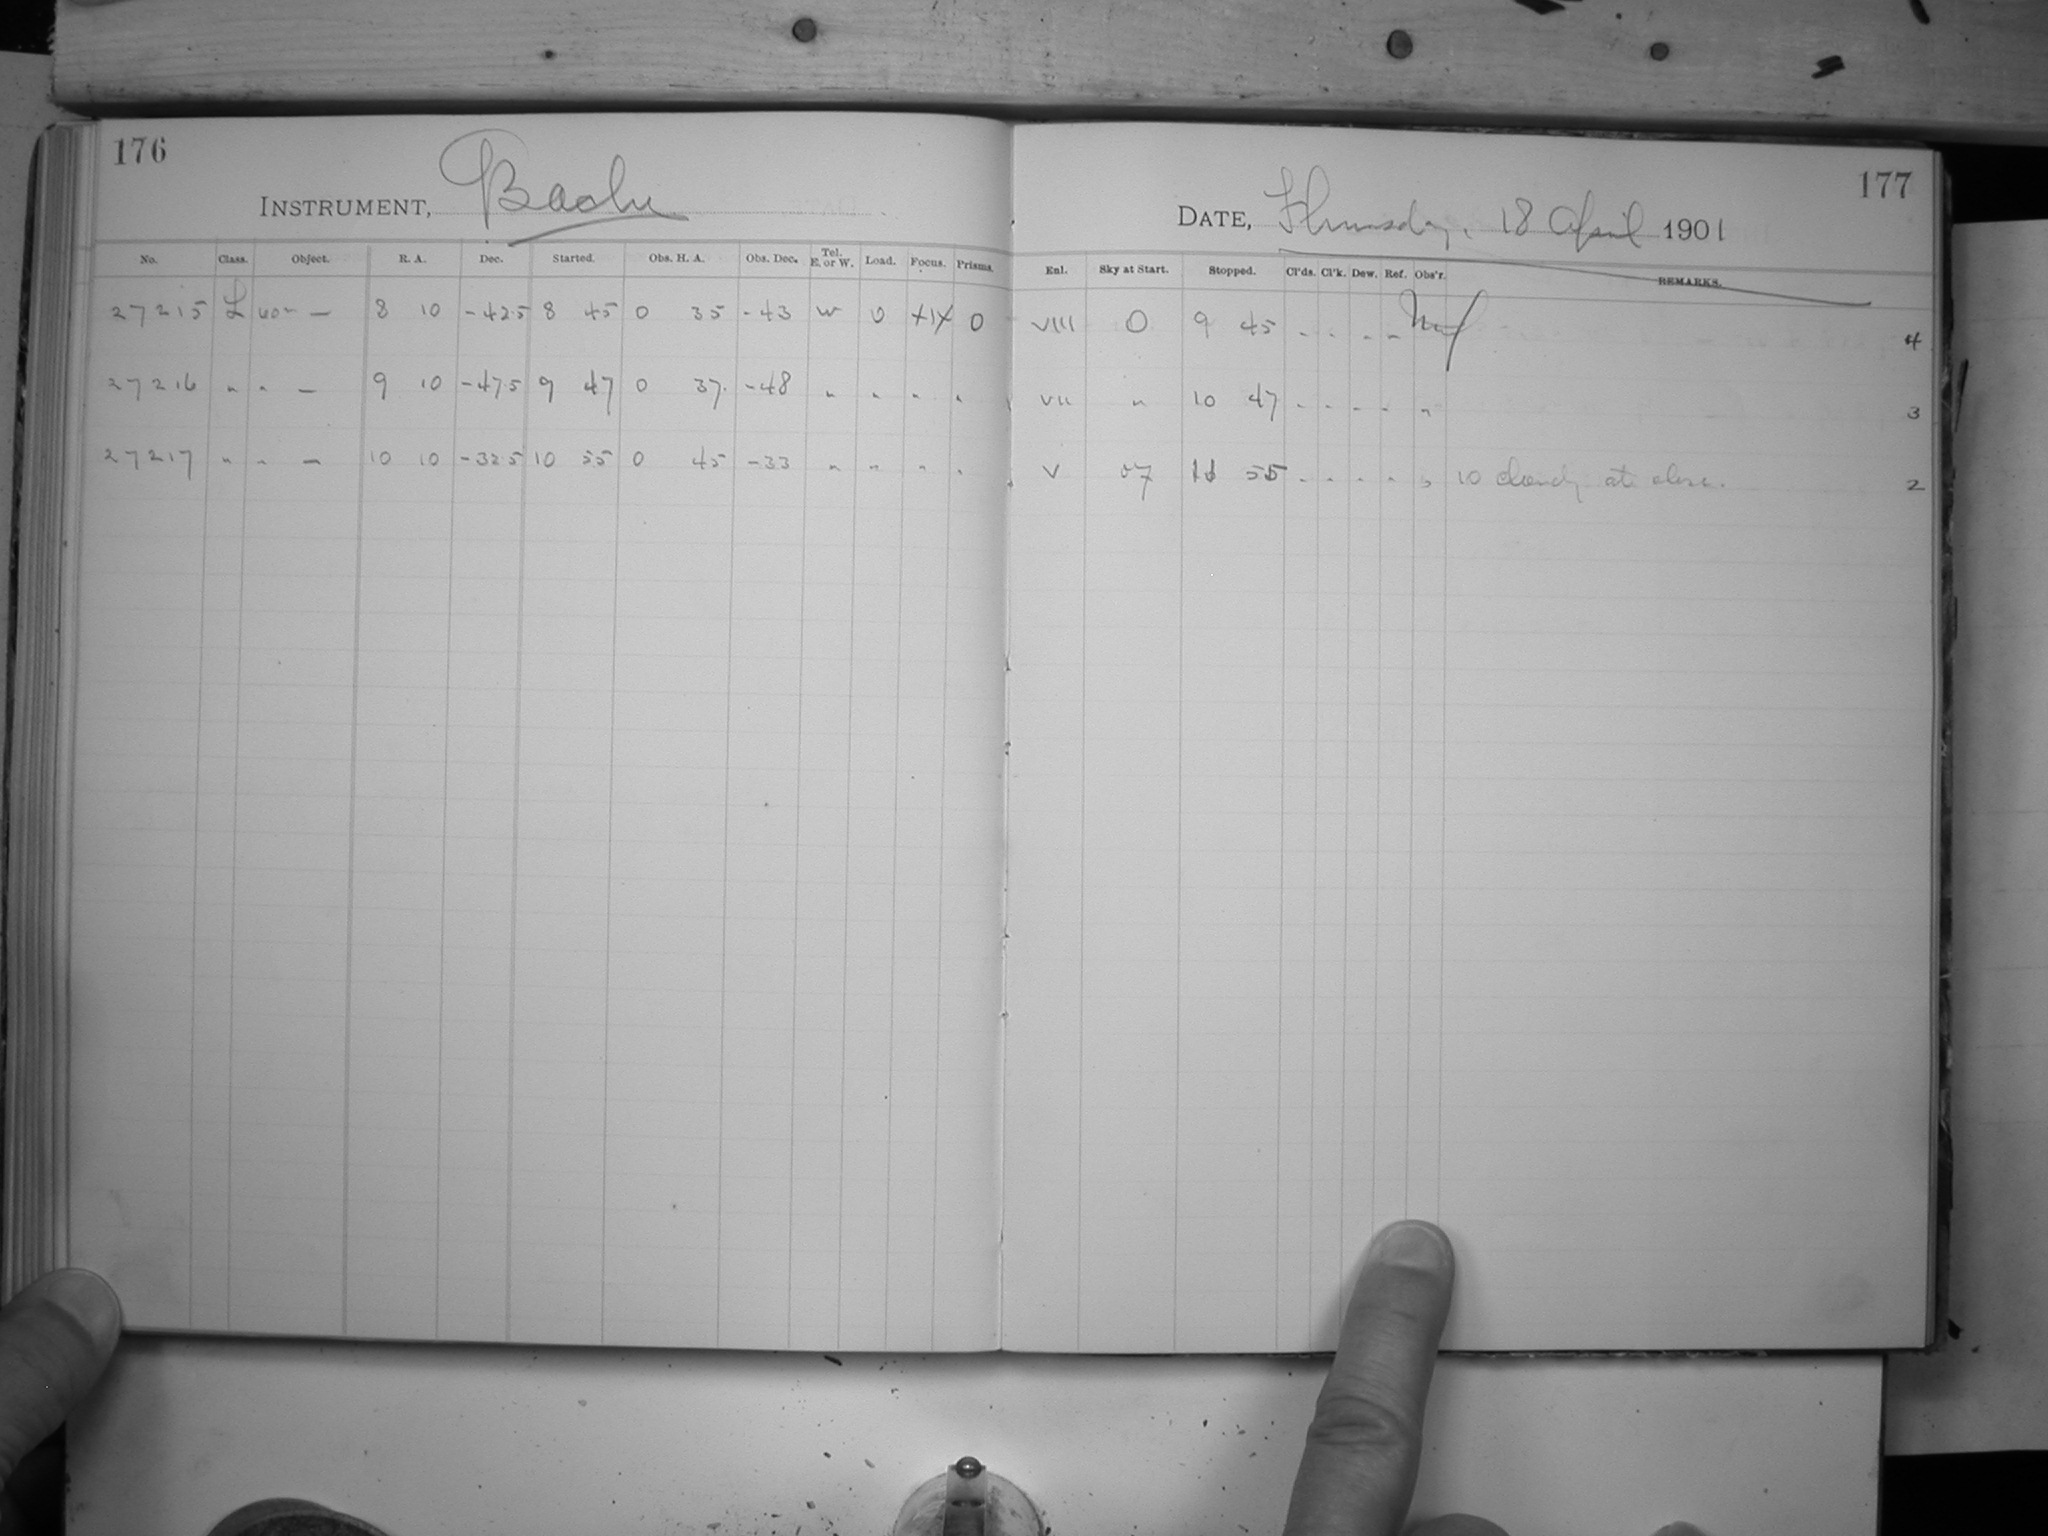 176
INSTRUMENT, Bache
No. Class. Object. R. A. Dec. Started. Obs. H. A. Obs. Dec. Tel. E. or W. Load. Focus. Prisms.
27215 L 60m — 8 10 -42.5 8 45 0 35 -43 W 0 0
27216 " " — 9 10 -47.5 9 47 0 37 -48 " " " "
27217 " " — 10 10 -32.5 10 55 0 45 -33 " " " "
177
DATE, Thursday, 18 April 1901
Enl. Sky at Start. Stopped. Cl'ds. Cl'k. Dew. Ref. Obs'r. REMARKS.
VIII 0 9 45 - - - - 4
VII " 10 47 - - - - " 3
V 11 55 - - - - " 10 cloudy at close. 2